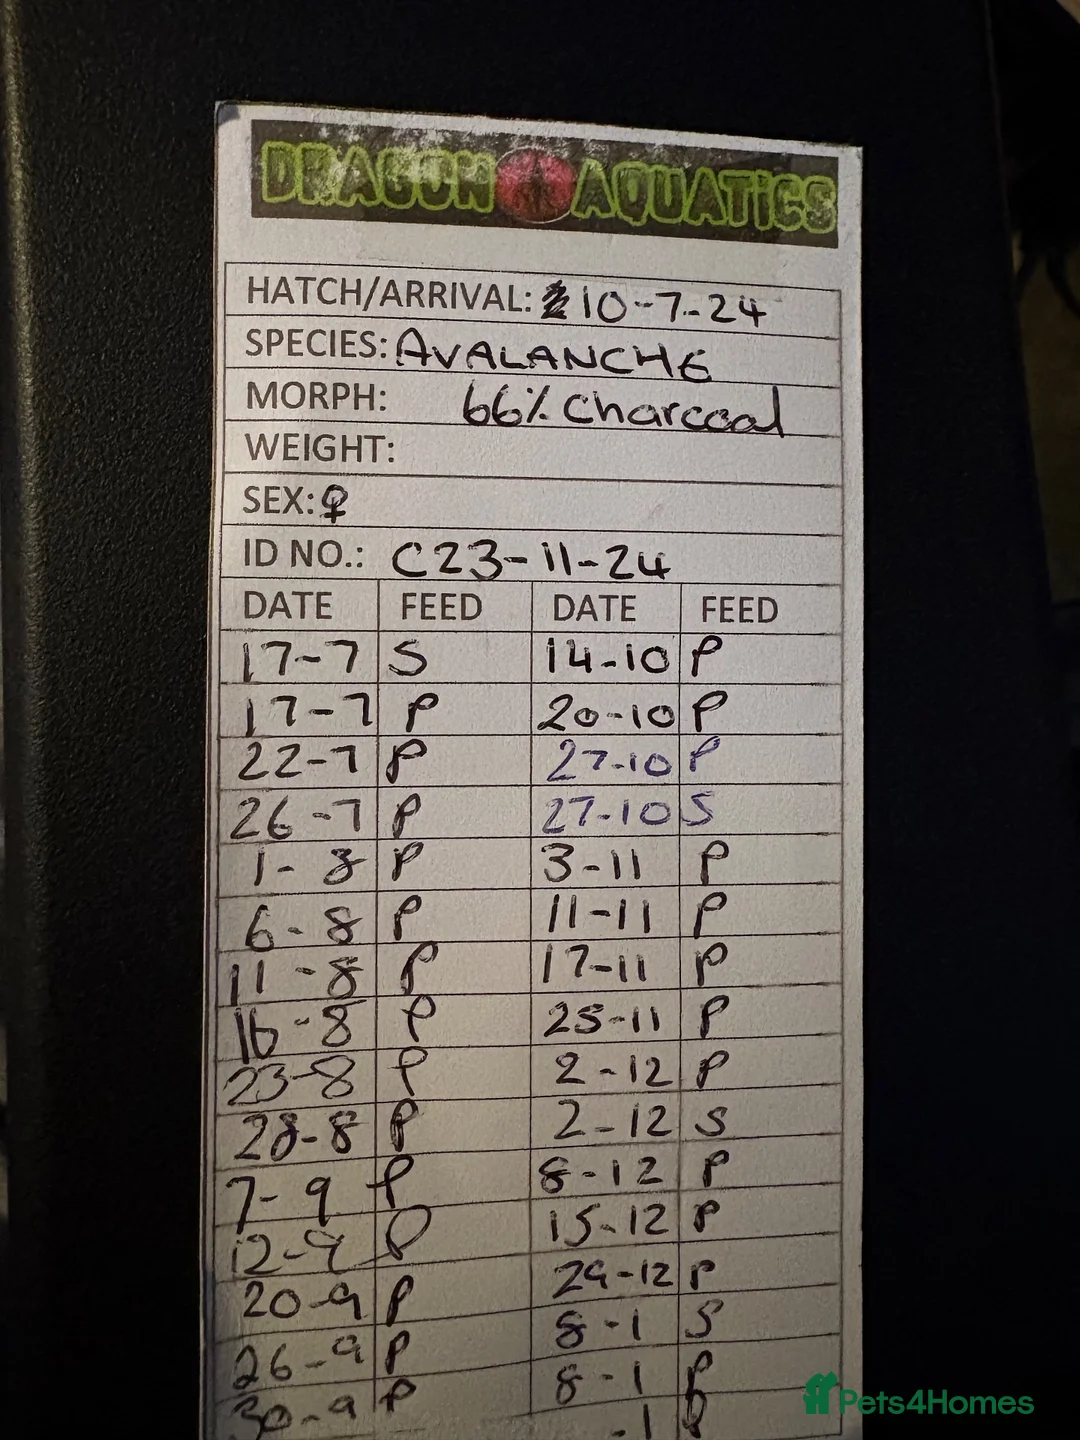 DRAGON AQUATICS
HATCH/ARRIVAL: 10-7-24
SPECIES: AVALANCHE
MORPH: 66% Charcoal
WEIGHT:
SEX: ♀
ID NO.: C23-11-24
DATE FEED DATE FEED
17-7 S 14-10 P
17-7 P 20-10 P
22-7 P 27-10 P
26-7 P 27-10 S
1-8 P 3-11 P
6-8 P 11-11 P
11-8 P 17-11 P
16-8 P 25-11 P
23-8 P 2-12 P
28-8 P 2-12 S
7-9 P 8-12 P
12-9 P 15-12 P
20-9 P 29-12 P
26-9 P 8-1 S
30-9 P 8-1 P
-1 P
Pets4Homes